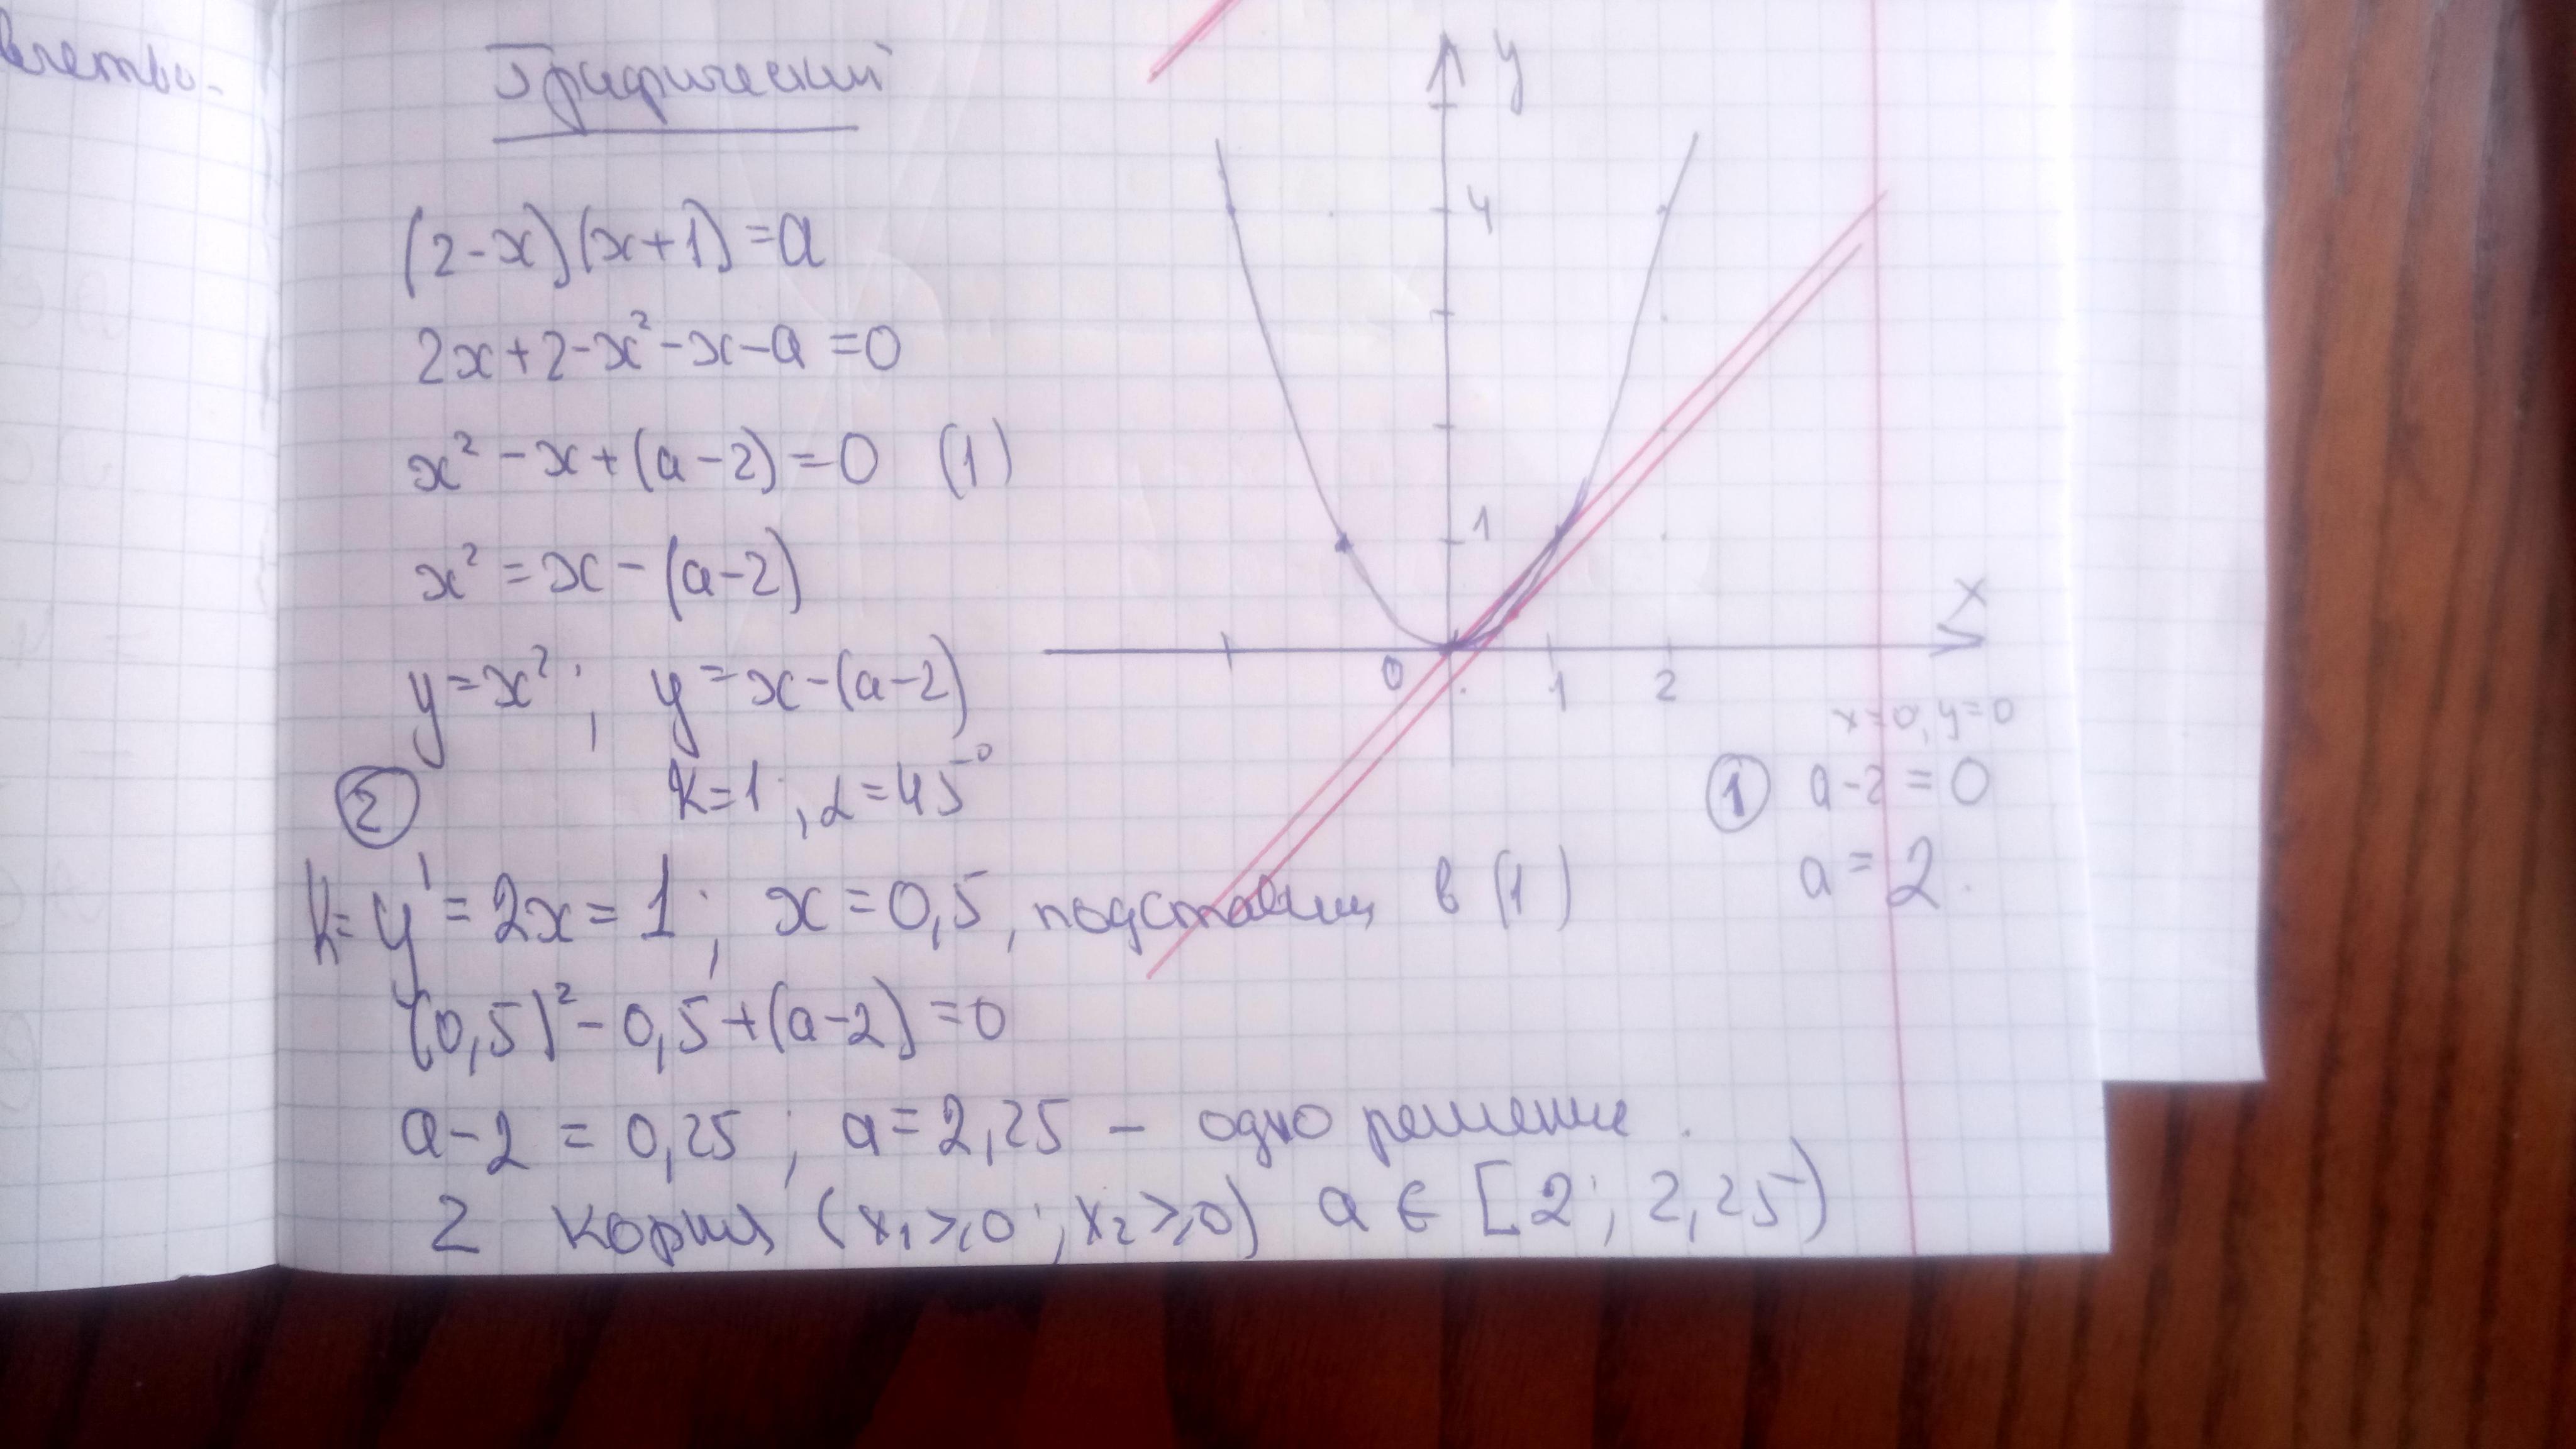 Графический
(2-x)(x+1)=a
2x+2-x²-x-a=0
x²-x+(a-2)=0 (1)
x²=x-(a-2)
y=x²; y=x-(a-2)
k=1; α=45°
2
k=y'=2x=1; x=0,5, подставим в (1)
(0,5)²-0,5+(a-2)=0
a-2=0,25; a=2,25 - одно решение.
2 корня (x₁≥0; x₂≥0) a∈[2; 2,25)
y
4
1
x
0 1 2
x=0, y=0
1 a-2=0
a=2.